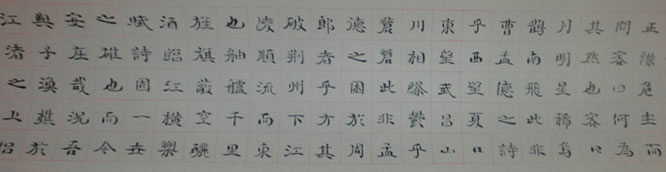 正襟危坐而
問客曰何為
其然也客曰
月明星稀烏
鵲南飛此非
曹孟德之詩
乎西望夏口
東望武昌山
川相繆鬱乎
蒼蒼此非孟
德之困於周
郎者乎方其
破荊州下江
陵順流而東
也舳艫千里
旌旗蔽空釃
酒臨江橫槊
賦詩固一世
之雄也而今
安在哉況吾
與子漁樵於
江渚之上侶